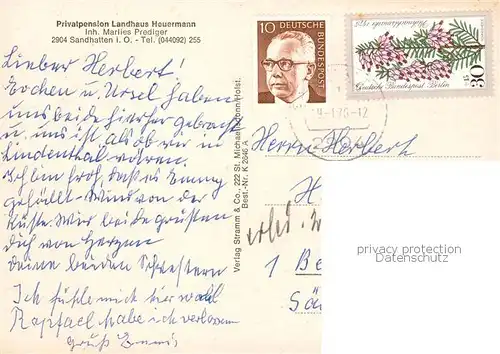 Privatpension Landhaus Heuermann
Inh. Marlies Prediger
2904 Sandhatten i. O. - Tel. (044092) 255
Lieber Herbert!
Jochen u. Ursel haben
uns beide hierher gebracht
u. uns ist als ob wir in
Lindenthal wären.
Ich bin froh, daß es Emmy
gefällt - Wind von der
Küste. Wir beide grüßen
dich von Herzen
deine beiden Schwestern
Ich fühle mich hier wohl
Raphael habe ich verlassen
Gruß
Verlag Stramm & Co., 222 St. Michaelisdonn/Holst.
Best.-Nr. K 2646 A
10 DEUTSCHE
BUNDESPOST
Deutsche Bundespost Berlin
30
15
Herrn Herbert
H
1 Be
privacy protection
Datenschutz